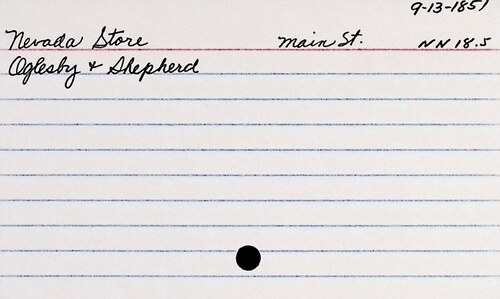 9-13-1851
Nevada Store Main St. NN 18.5
Oglesby & Shepherd